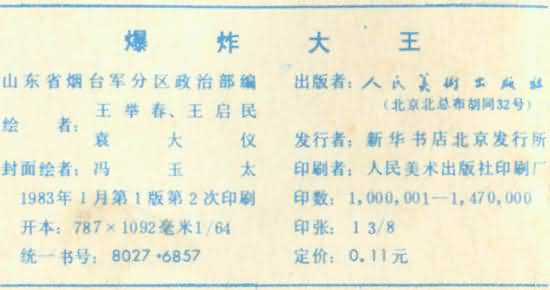 爆炸大王
山东省烟台军分区政治部编
绘者：王举春、王启民
袁大仪
封面绘者：冯玉太
1983年1月第1版第2次印刷
开本：787×1092毫米1/64
统一书号：8027·6857
出版者：人民美術出版社
（北京北总布胡同32号）
发行者：新华书店北京发行所
印刷者：人民美术出版社印刷厂
印数：1,000,001—1,470,000
印张：1 3/8
定价：0.11元